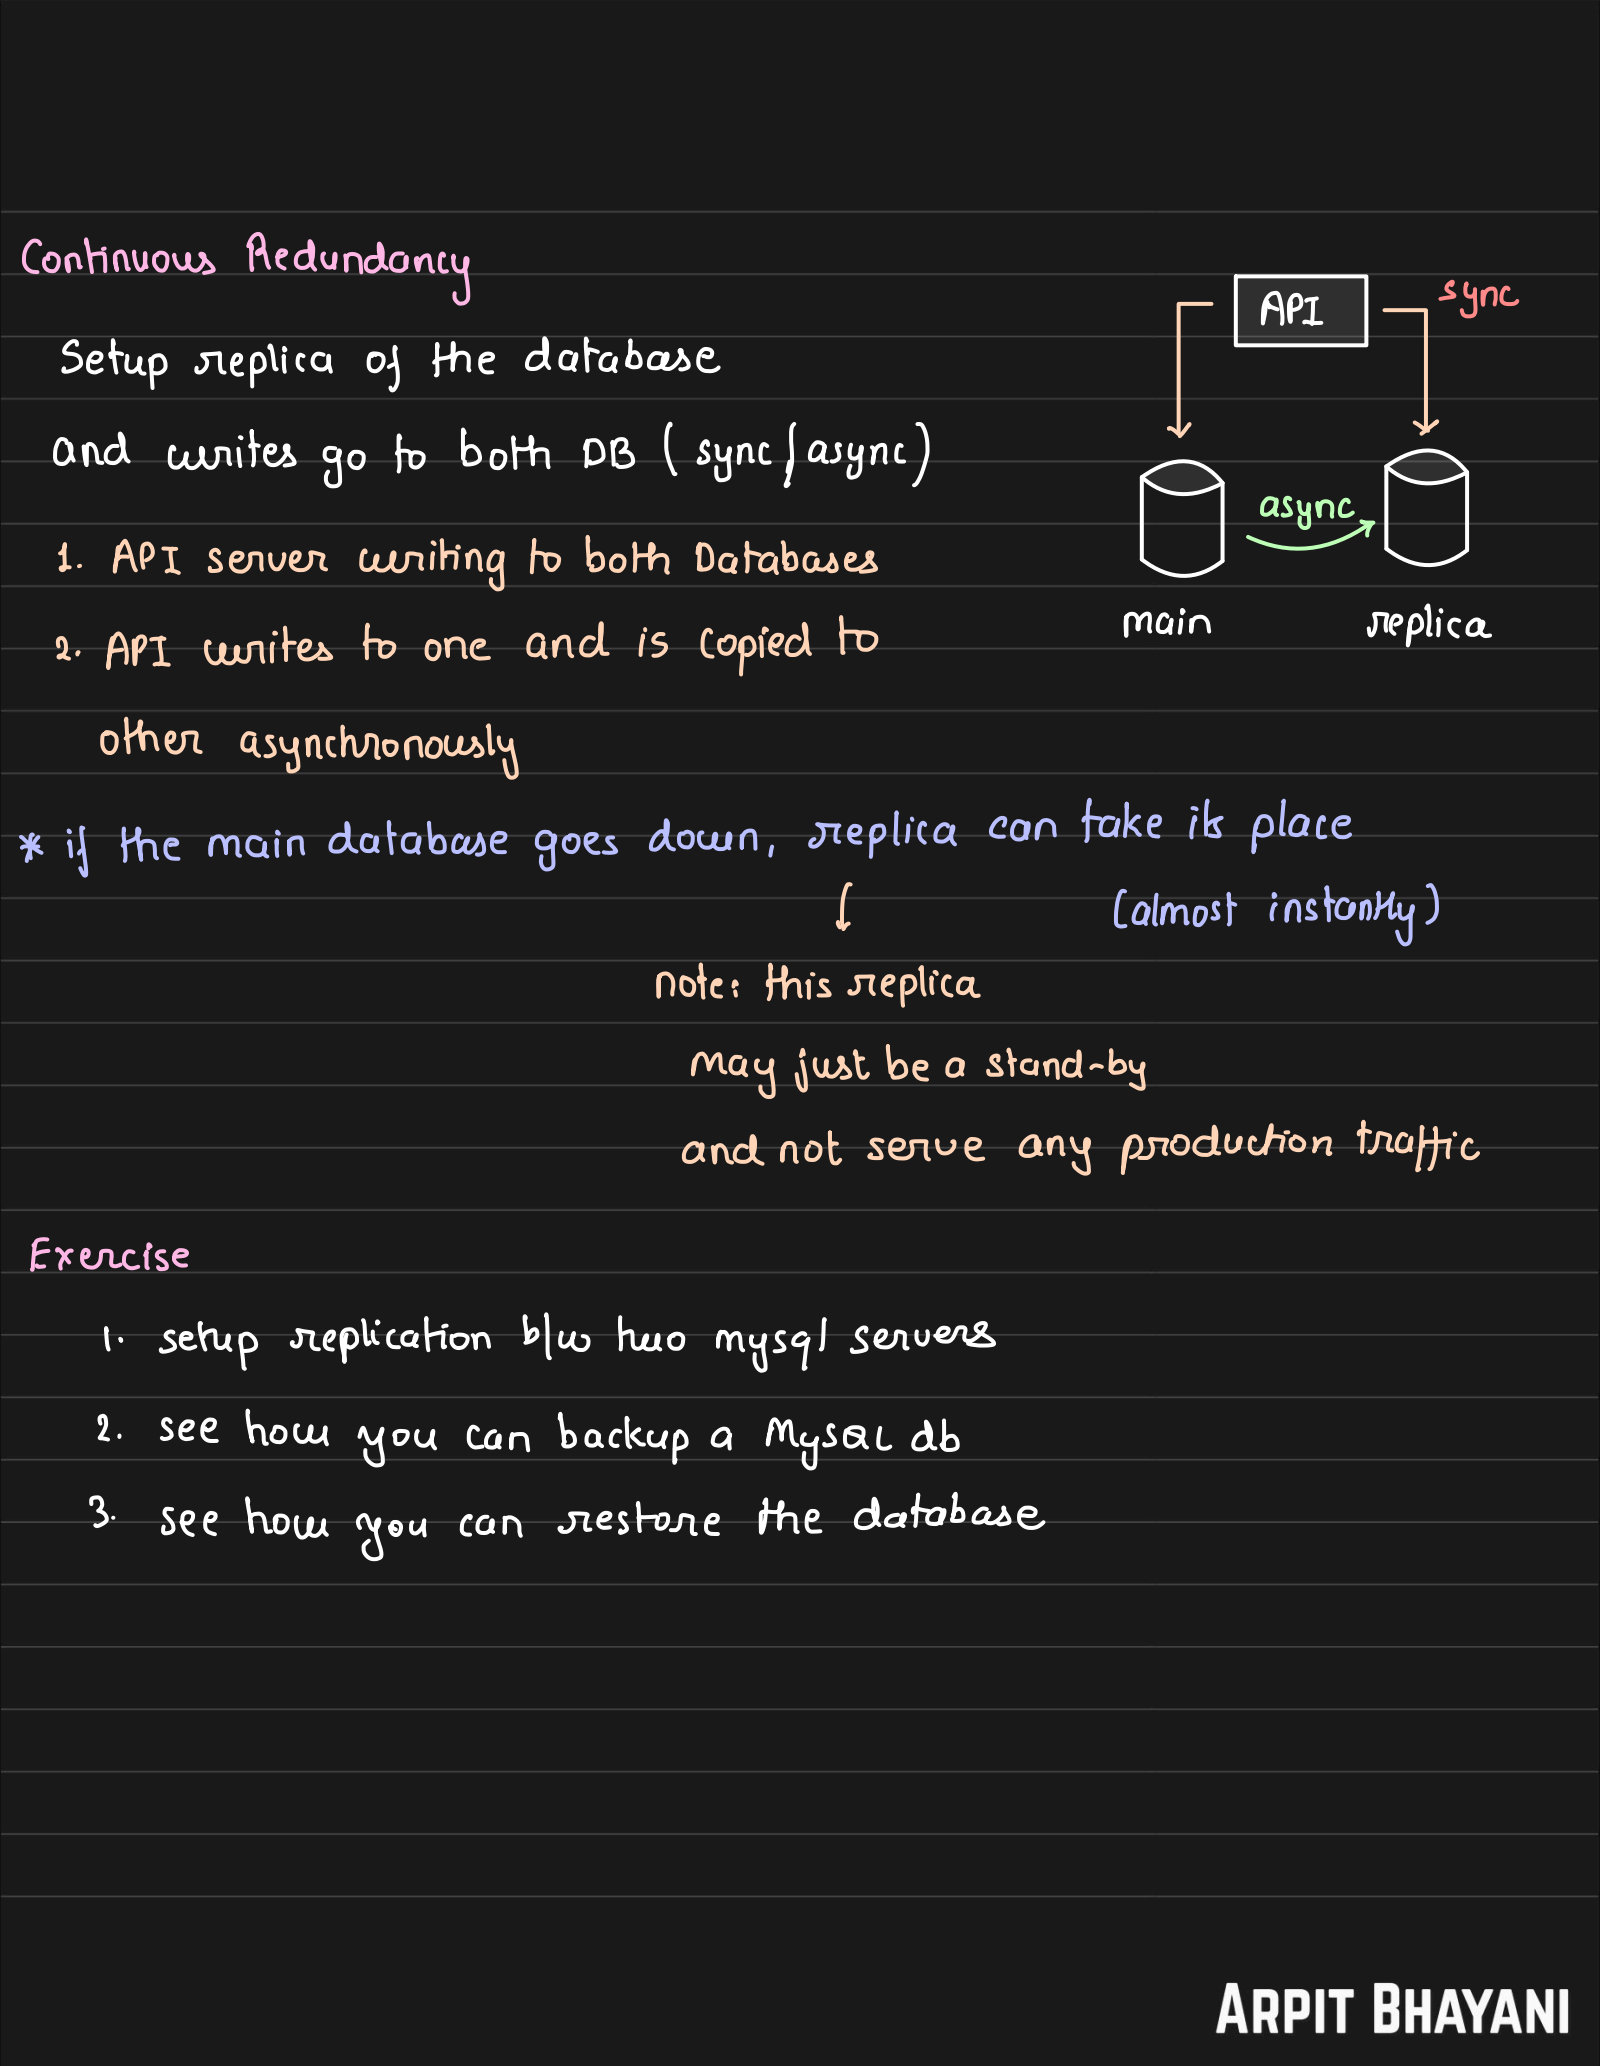 Continuous Redundancy
API
sync
Setup replica of the database
and writes go to both DB (sync/async)
async
1. API server writing to both Databases
main
replica
2. API writes to one and is copied to
other asynchronously
* if the main database goes down, replica can take its place
(almost instantly)
note: this replica
may just be a stand-by
and not serve any production traffic
Exercise
1. setup replication b/w two mysql servers
2. see how you can backup a MySQL db
3. see how you can restore the database
ARPIT BHAYANI